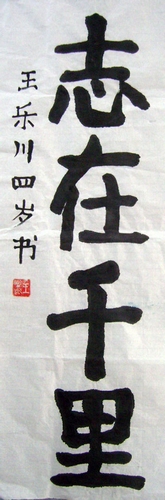 志在千里
王乐川四岁书